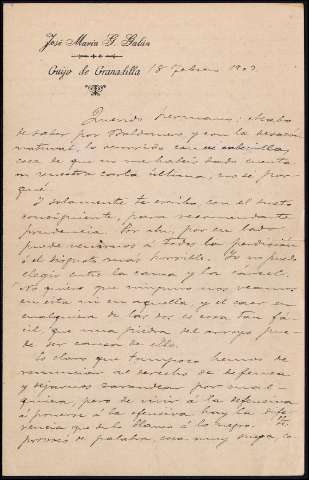 José María G. Galán
Guijo de Granadilla 18 Febrero 190
Querido hermano: Acabo
de saber por Baldomero y con la desazón
natural, lo ocurrido con
cosa de que no me habéis dado cuenta
en vuestra carta última, no sé por
qué.
Y solamente te escribo con el susto
consiguiente, para recomendarte
prudencia. Por ahí, por un lado
puede venirnos á todos la perdición
ó el disgusto más horrible. Yo no puedo
elegir entre la cama y la cárcel.
No quiero que ninguno nos veamos
en esta ni en aquella, y el caer en
cualquiera de las dos es cosa tan fá-
cil, que una piedra del arroyo pue-
de ser causa de ello.
Es claro que tampoco hemos de
renunciar al derecho de defensa
y dejarnos zarandear por cual-
quiera, pero de vivir á la defensiva
á ponerse á la ofensiva hay la dife-
rencia que de lo blanco á lo negro. Te
provocó de palabra, cosa muy